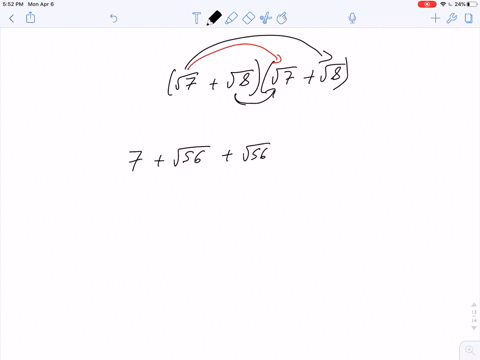 5:52 PM Mon Apr 6
24%
T
(√7 + √8)(√7 + √8)
7 + √56 + √56
13
14